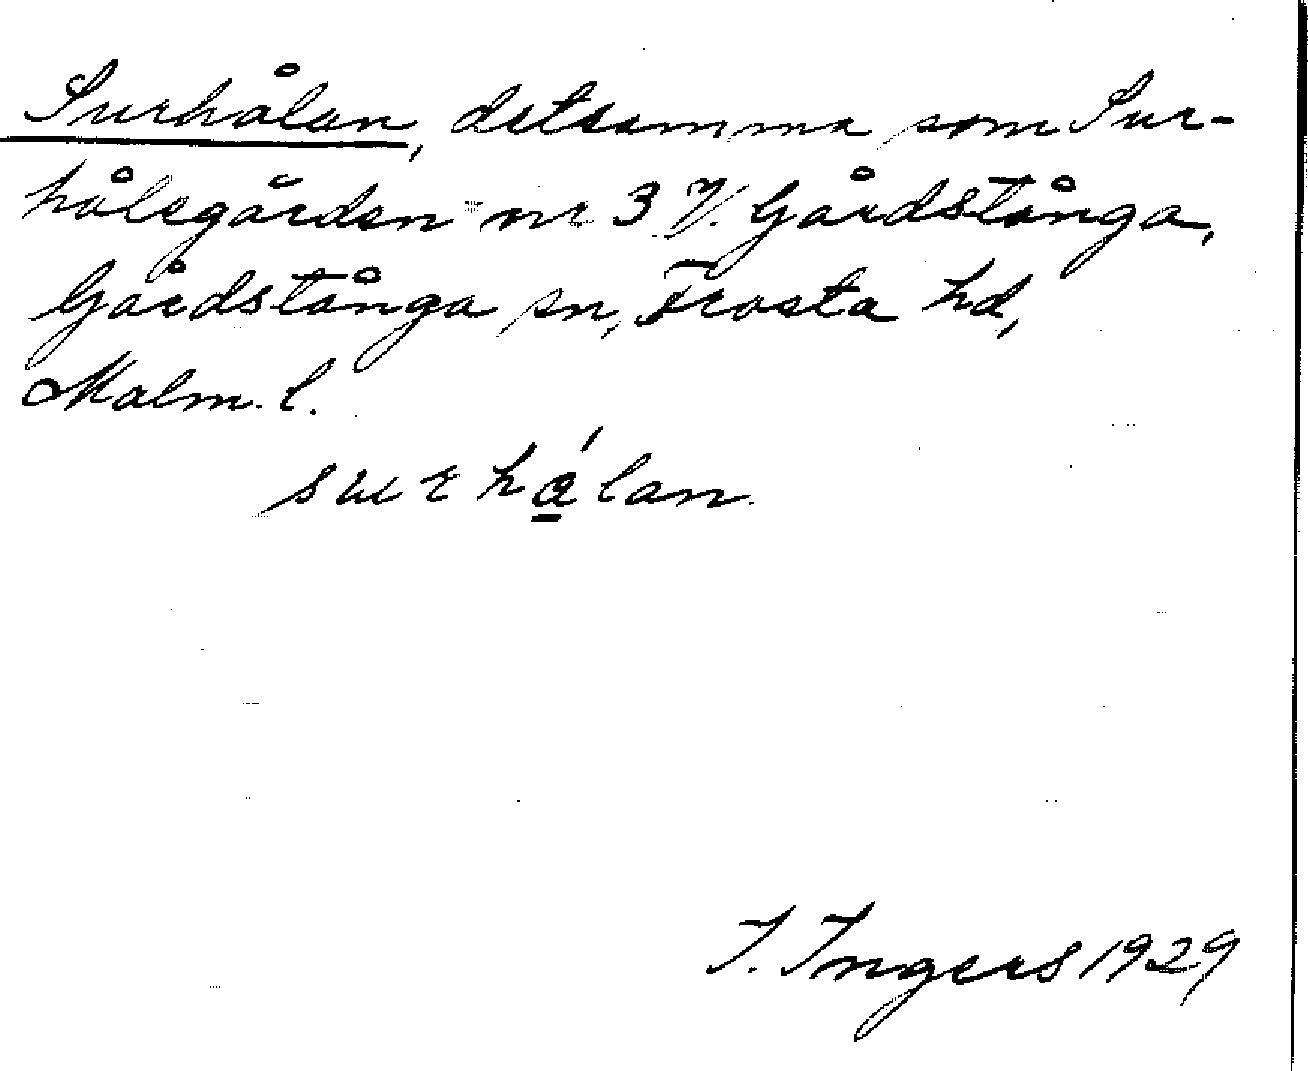 Surhålan, detsamma som Sur-
hålegården nr 3 V. Gårdstånga,
Gårdstånga sn, Frosta hd,
Malm. l.
surhá̱lan.
I. Ingers 1929